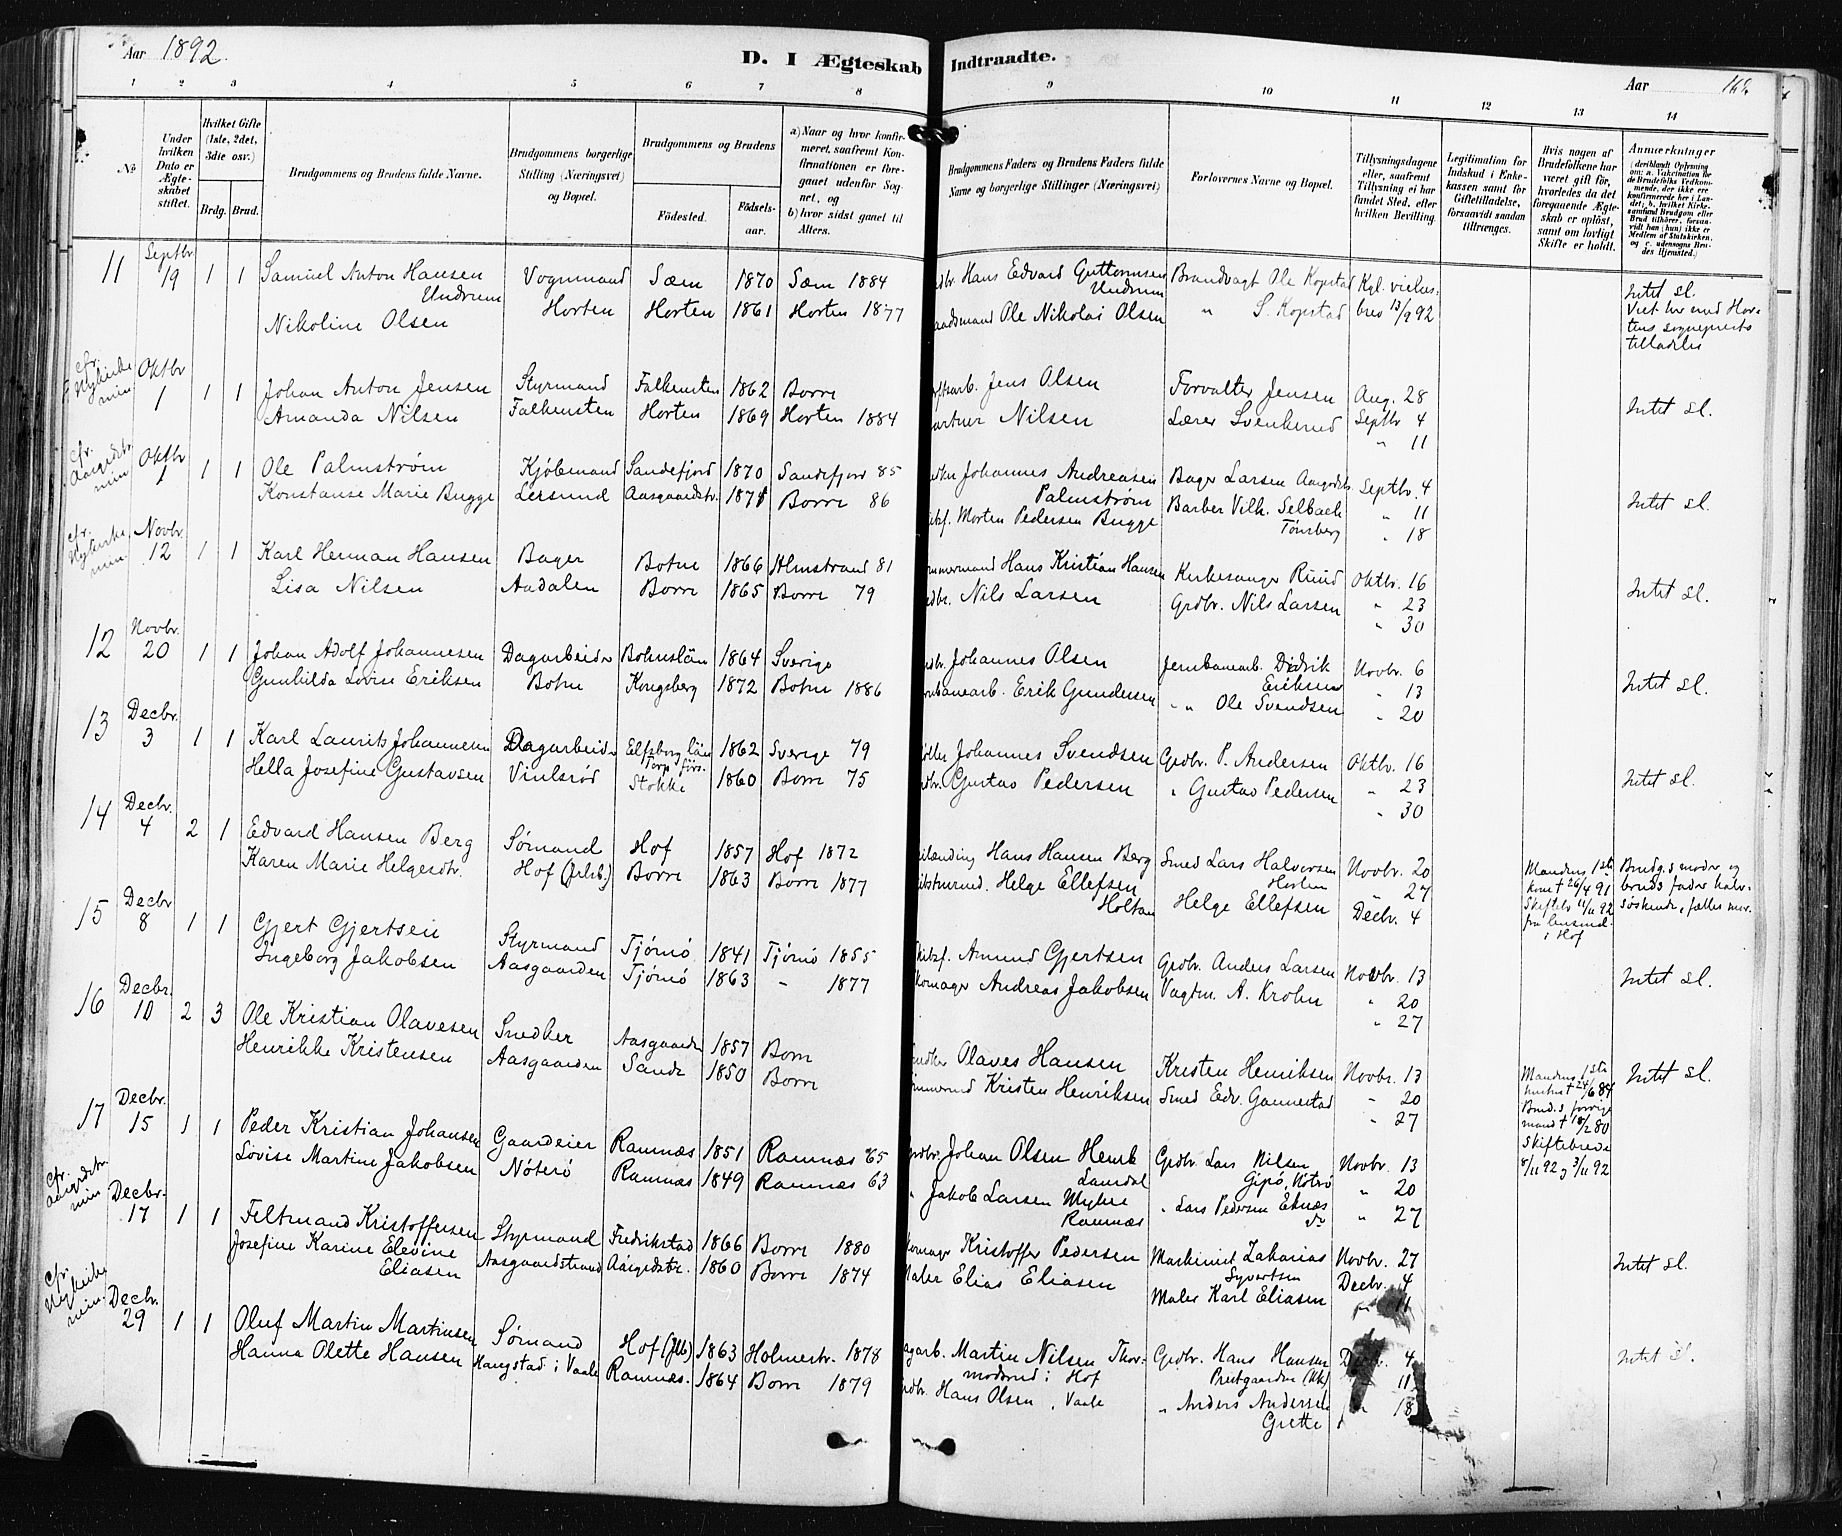 Aar 1892.
D. I Ægteskab Indtraadte.
Aar 166.
1 2 3 4 5 6 7 8 9 10 11 12 13 14
No
Under hvilken Dato er Ægteskabet stiftet.
Hvilket Gifte (1ste, 2det, 3die osv.)
Brdg. Brud.
Brudgommens og Brudens fulde Navne.
Brudgommens borgerlige Stilling (Næringsvei) og Bopæl.
Brudgommens og Brudens
Födested. Födselsaar.
a) Naar og hvor konfirmeret, saafremt Konfirmationen er foregaaet udenfor Sognet, og b) hvor sidst gaaet til Alters.
Brudgommens Faders og Brudens Faders fulde Navne og borgerlige Stillinger (Næringsvei)
Forlovernes Navne og Bopæl.
Tillysningsdagene eller, saafremt Tillysning ei har fundet Sted, efter hvilken Bevilling.
Legitimation for Indskud i Enkekassen samt for Giftetilladelse, forsaavidt saadan tiltrænges.
Hvis nogen af Brudefolkene har været gift för, hvorledes da det foregaaende Ægteskab er oplöst, samt om lovligt Skifte er holdt.
Anmærkninger
11 Septbr. 19 1 1 Samuel Anton Hansen Undrum Vognmand Sæm 1870 Sæm 1884 Hans Edvard Guttormsen Undrum Brandvagt Ole Kopstad Kgl. vielses- Intet sl.
Nikoline Olsen Horten Horten 1861 Horten 1877 Ole Nikolai Olsen " S. Kopstad brev 13/9 92 Viet her med Hortens sogneprests tilladelse
cfr. Nykirke min Oktbr 1 1 1 Johan Anton Jensen Styrmand Falkensten 1862 Borre Jens Olsen Forvalter Jensen Aug. 28 Intet sl.
Amanda Nilsen Falkensten Horten 1869 Horten 1884 Nilsen Lærer Svenkerud Septbr 4
" 11
cfr. Aargrdstr. min Oktbr 1 1 1 Ole Palmstrøm Kjøbmand Sandefjord 1870 Sandefjord 85 Johannes Andreasen Palmstrøm Bager Larsen Aargrdstr Septbr. 4 Intet sl.
Konstanse Marie Bugge Lersund Aasgaardstr. 1871 Borre 86 Morten Pedersen Bugge Barber Vilh. Selbach Tønsberg " 11
" 18
cfr. Nykirke min Novbr. 12 1 1 Karl Herman Hansen Bager Botne 1866 Holmstrand 81 Hans Kristian Hansen Kirkesanger Ruud Oktbr. 16 Intet sl.
Lisa Nilsen Aadalen Borre 1865 Borre 79 Nils Larsen Grdbr. Nils Larsen " 23
" 30
12 Novbr. 20 1 1 Johan Adolf Johannesen Dagarbeider Bohuslän 1864 Sverige Johannes Olsen Jernbanearb. Didrik Eriksen Novbr. 6 Intet sl.
Gunhilda Lovise Eriksen Botne Kongsberg 1872 Botne 1886 Erik Gundersen " " Ole Svendsen " 13
" 20
13 Decbr. 3 1 1 Karl Laurits Johannesen Dagarbeider Elfsborg län Torp förs. 1862 Sverige 79 Johannes Svendsen Grdbr. P. Andersen Oktbr. 16 Intet sl.
Hella Josefine Gustavsen Vinlsrød Stokke 1860 Borre 75 Gustav Pedersen " Gustav Pedersen " 23
" 30
14 Decbr. 4 2 1 Edvard Hansen Berg Sømand Hof 1857 Hof 1872 Hans Hansen Berg Smed Lars Halvorsen Horten Novbr. 20 Mandens 1ste kone † 26/4 91 Brudg.s moder og bruds fader halvsøskende, fælles mor.
Karen Marie Helgesdtr. Hof (Jrlsb.) Borre 1863 Borre 1877 Helge Ellefsen Holtan Helge Ellefsen " 27 Skiftebr 11/11 92 fra lensmd. i Hof
Decbr. 4
15 Decbr 8 1 1 Gjert Gjertsen Styrmand Tjømø 1841 Tjømø 1855 Amund Gjertsen Grdbr. Anders Larsen Novbr. 13 Intet sl.
Ingeborg Jakobsen Aasgaarden Tjømø 1863 " 1877 Andreas Jakobsen Vagtm. A. Krohn " 20
" 27
16 Decbr. 10 2 3 Ole Kristian Olavesen Snedker Aasgaarden 1857 Borre Olaves Hansen Kristen Henriksen Novbr. 13 Mandens 1ste hustru † 24/6 84 Intet sl.
Henrikke Kristensen Aasgaarden Sande 1850 Borre Kristen Henriksen Smed Edv. Gannestad " 20 Brud.s forrige mand † 18/2 80
" 27 Skiftebreve 8/11 92 og 3/11 92
17 Decbr. 15 1 1 Peder Kristian Johansen Gaardeier Ramnæs 1851 Ramnæs 65 Johan Olsen Henrk Lamdal Grdbr. Lars Nilsen Gipø, Nøterø Novbr. 13
Lovise Martine Jakobsen Nøterø Ramnæs 1849 Ramnæs 63 Jakob Larsen Myhre Ramnæs " Lars Pedersen Eknæs do " 20
" 27
cfr. Aargrdstr. min Decbr. 17 1 1 Feltmand Kristoffersen Styrmand Fredrikstad 1866 Borre 1880 Kristoffer Pedersen Maskinist Zakarias Syvertsen Novbr. 27 Intet sl.
Josefine Karine Elevine Eliasen Aasgaardstrand Aargrdstr. 1860 Borre 1874 Maler Elias Eliasen Maler Karl Eliasen Decbr. 4
" 11
cfr. Nykirke min. Decbr. 29 1 1 Oluf Martin Martinsen Sømand Hof (Jrlb) 1863 Holmestr. 1878 Martin Nilsen Thormodsrud i Hof Grdbr. Hans Hansen Prestgaarden Decbr. 4 Intet sl.
Hanna Olette Hansen Haugstad i Vaale Ramnæs. 1864 Borre 1879 Hans Olsen, Vaale " Anders Andersen Grette " 11
" 18